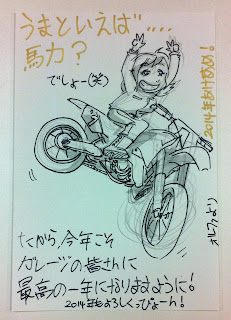 うまといえば‥‥
馬力？
でしょー(笑)
2014年あけおめ！
だから、今年こそ
ガレージの皆さんに
最高の一年になりますように！
2014年もよろしくっぴょーん！
オルファより